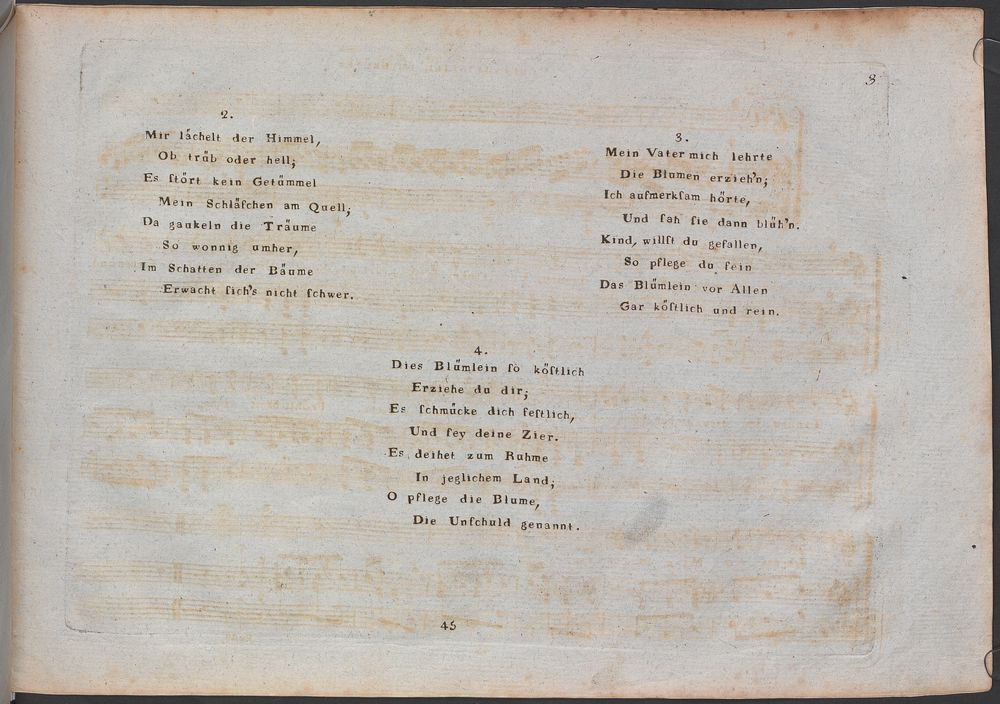 3
2.
Mir lächelt der Himmel,
Ob trüb oder hell;
Es ſtört kein Getümmel
Mein Schläfchen am Quell;
Da gaukeln die Träume
So wonnig umher,
Im Schatten der Bäume
Erwacht ſich's nicht ſchwer.
3.
Mein Vater mich lehrte
Die Blumen erzieh'n;
Ich aufmerkſam hörte,
Und ſah ſie dann blüh'n.
Kind, willſt du gefallen,
So pflege du fein
Das Blümlein vor Allen
Gar köſtlich und rein.
4.
Dies Blümlein ſo köſtlich
Erziehe du dir;
Es ſchmücke dich feſtlich,
Und ſey deine Zier.
Es deihet zum Ruhme
In jeglichem Land;
O pflege die Blume,
Die Unſchuld genannt.
45